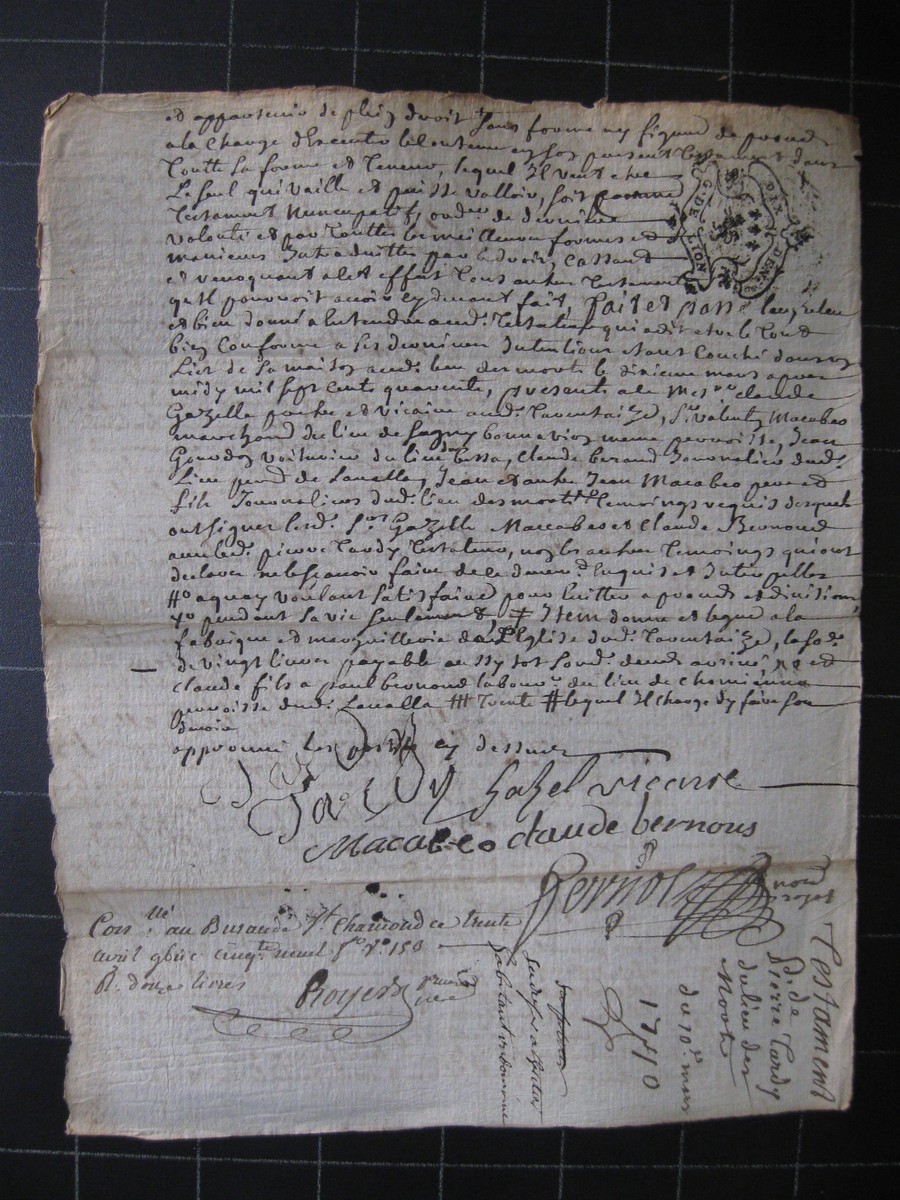 et appartenir de plein droit sans forme ny figure de proces
a la charge d'executer le contenu en son present testament dans
toutte sa forme et teneur, lequel Il veut etre
le seul qui vaille et puisse valloir, soit comme
testament nuncupatif, ord.re de derniere
volonté et par touttes les meilleures formes et
manieres Introduittes par le droit, cassant
et revoquant a cet effect tous autres testaments
qu'Il pourroit avoir cy devant fait, fait et passé leu, releu
et bien donné a entendre aud. testateur qui a dit etre le tout
bien conforme a ses dernieres Intentions etant couché dans son
Lict de sa maison aud. lieu des morts le dixieme mars apres
midy mil sept cents quarente, presents a ce Mes.re claude
Gazelle pretre et vicaire aud. tarentaize, S.r valenty Macabeo
marchand du lieu de bonnevios meme parroisse, Jean
voiturier du lieu claude beraud Journalier dud.
Lieu parr.e de Lavalla, Jean et autre Jean Macabeo pere et
fils Journaliers dud. lieu des morts temoings requis desquels
ont signer lesd. S.rs Gazelle Maccabeo et Claude Bernoud
avec led. pierre tardy testateur, non les autres temoings qui ont
declarer ne le scavoir faire de ce duem.t Enquis et Interpellés
a quoy voulant satisfaire pour eviter a procés et division
pendant sa vie seulement # Item donne et legue a la
fabrique et marguillerie de l'Eglise dud. tarentaize, la so.e
de vingt livres payable aussy tot sond. deceds arrivé et
claude fils a paul bernoud labour.r du lieu de chomienne
parroisse dud. Lavalla ## trente # lequel Il charge d'y faire son
devoir
approuvé les cy dessus
Tardy Gazel vicaire
Macabeo claude bernous
Pernol
no.re royal
Con.llé au Bureau de S.t Chamond ce trente
avril 1740 cinq.e neuf f.o r.o 150
R. douze livres
Royer
Testament
de
Pierre Tardy
du lieu des
Morts
du 10.e mars
1740